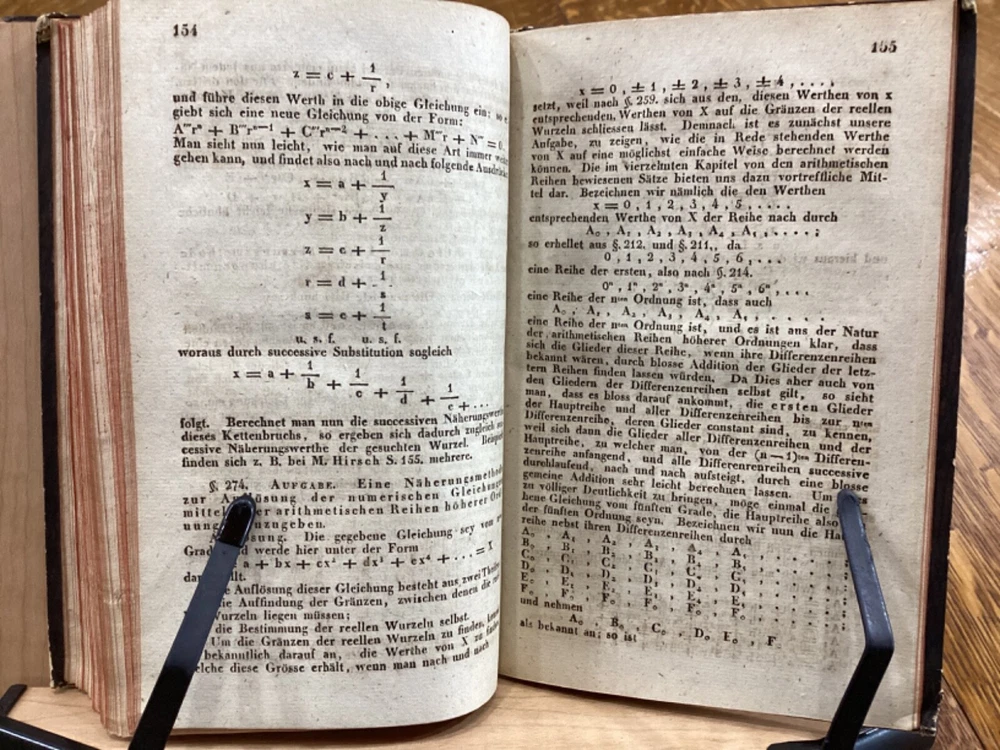 154
z = c + 1/r,
und führe diesen Werth in die obige Gleichung ein; so
giebt sich eine neue Gleichung von der Form:
A‴rⁿ + B‴rⁿ⁻¹ + C‴rⁿ⁻² + . . . + M‴r + N‴ = 0.
Man sieht nun leicht, wie man auf diese Art immer
gehen kann, und findet also nach und nach folgende
x = a + 1/y
y = b + 1/z
z = c + 1/r
r = d + 1/s
s = e + 1/t
u. s. f. u. s. f.
woraus durch successive Substitution sogleich
x = a + 1/b + 1/c + 1/d + 1/e + . . .
folgt. Berechnet man nun die successiven Näherungswerthe
dieses Kettenbruchs, so ergeben sich dadurch zugleich
cessive Näherungswerthe der gesuchten Wurzel.
finden sich z. B. bei M. Hirsch S. 155. mehrere.
§. 274. AUFGABE. Eine Näherungsmethode
zur Auflösung der numerischen Gleichungen
mittel arithmetischen Reihen höherer
nung anzugeben.
Die gegebene Gleichung sey vom
Grade werde hier unter der Form
a + bx + cx² + dx³ + ex⁴ + . . . = X
Auflösung dieser Gleichung besteht aus zwei Theilen
die Auffindung der Gränzen, zwischen denen die
Wurzeln liegen müssen;
die Bestimmung der reellen Wurzeln selbst.
Um die Gränzen der reellen Wurzeln zu finden,
bekanntlich darauf an, die Werthe von X zu
welche diese Grösse erhält, wenn man nach und nach
155
x = 0, ± 1, ± 2, ± 3, ± 4, . . . .
setzt, weil nach §. 259. sich aus den, diesen Werthen von x
entsprechenden, Werthen von X auf die Gränzen der reellen
Wurzeln schliessen lässt. Demnach ist es zunächst unsere
Aufgabe, zu zeigen, wie die in Rede stehenden Werthe
von X auf eine möglichst einfache Weise berechnet werden
können. Die im vierzehnten Kapitel von den arithmetischen
Reihen bewiesenen Sätze bieten uns dazu vortreffliche Mit-
tel dar. Bezeichnen wir nämlich die den Werthen
x = 0, 1, 2, 3, 4, 5, . . . .
entsprechenden Werthe von X der Reihe nach durch
A₀, A₁, A₂, A₃, A₄, A₅, . . . . ;
so erhellet aus §. 212. und §. 211., da
0, 1, 2, 3, 4, 5, 6, . . .
eine Reihe der ersten, also nach §. 214.
0ⁿ, 1ⁿ, 2ⁿ, 3ⁿ, 4ⁿ, 5ⁿ, 6ⁿ, . . .
eine Reihe der nten Ordnung ist, dass auch
A₀, A₁, A₂, A₃, A₄, A₅, . . . .
eine Reihe der nten Ordnung ist, und es ist aus der Natur
der arithmetischen Reihen höherer Ordnungen klar, dass
sich die Glieder dieser Reihe, wenn ihre Differenzenreihen
bekannt wären, durch blosse Addition der Glieder der letz-
tern Reihen finden lassen würden. Da Dies aber auch von
den Gliedern der Differenzenreihen selbst gilt, so sieht
man, dass es bloss darauf ankommt, die ersten Glieder
der Hauptreihe und aller Differenzenreihen bis zur nten
Differenzenreihe, deren Glieder constant sind, zu kennen,
weil sich dann die Glieder aller Differenzenreihen und der
Hauptreihe, zu welcher man, von der (n — 1)ten Differen-
zenreihe anfangend, und alle Differenzenreihen successive
durchlaufend, nach und nach aufsteigt, durch eine blosse
gemeine Addition sehr leicht berechnen lassen. Um
zu völliger Deutlichkeit zu bringen, möge einmal die
bene Gleichung vom fünften Grade, die Hauptreihe also
der fünften Ordnung seyn. Bezeichnen wir nun die
reihe nebst ihren Differenzenreihen durch
A₀, A₁, A₂, A₃, A₄, A₅, . . . . ;
B₀, B₁, B₂, B₃, B₄, B₅, . . . . ;
C₀, C₁, C₂, C₃, C₄, C₅, . . . . ;
D₀, D₁, D₂, D₃, D₄, D₅, . . . . ;
E₀, E₁, E₂, E₃, E₄, E₅, . . . . ;
F₀, F₀, F₀, F₀, F₀, F₀, . . . . ;
und nehmen
A₀, B₀, C₀, D₀, E₀, F
als bekannt an; so ist